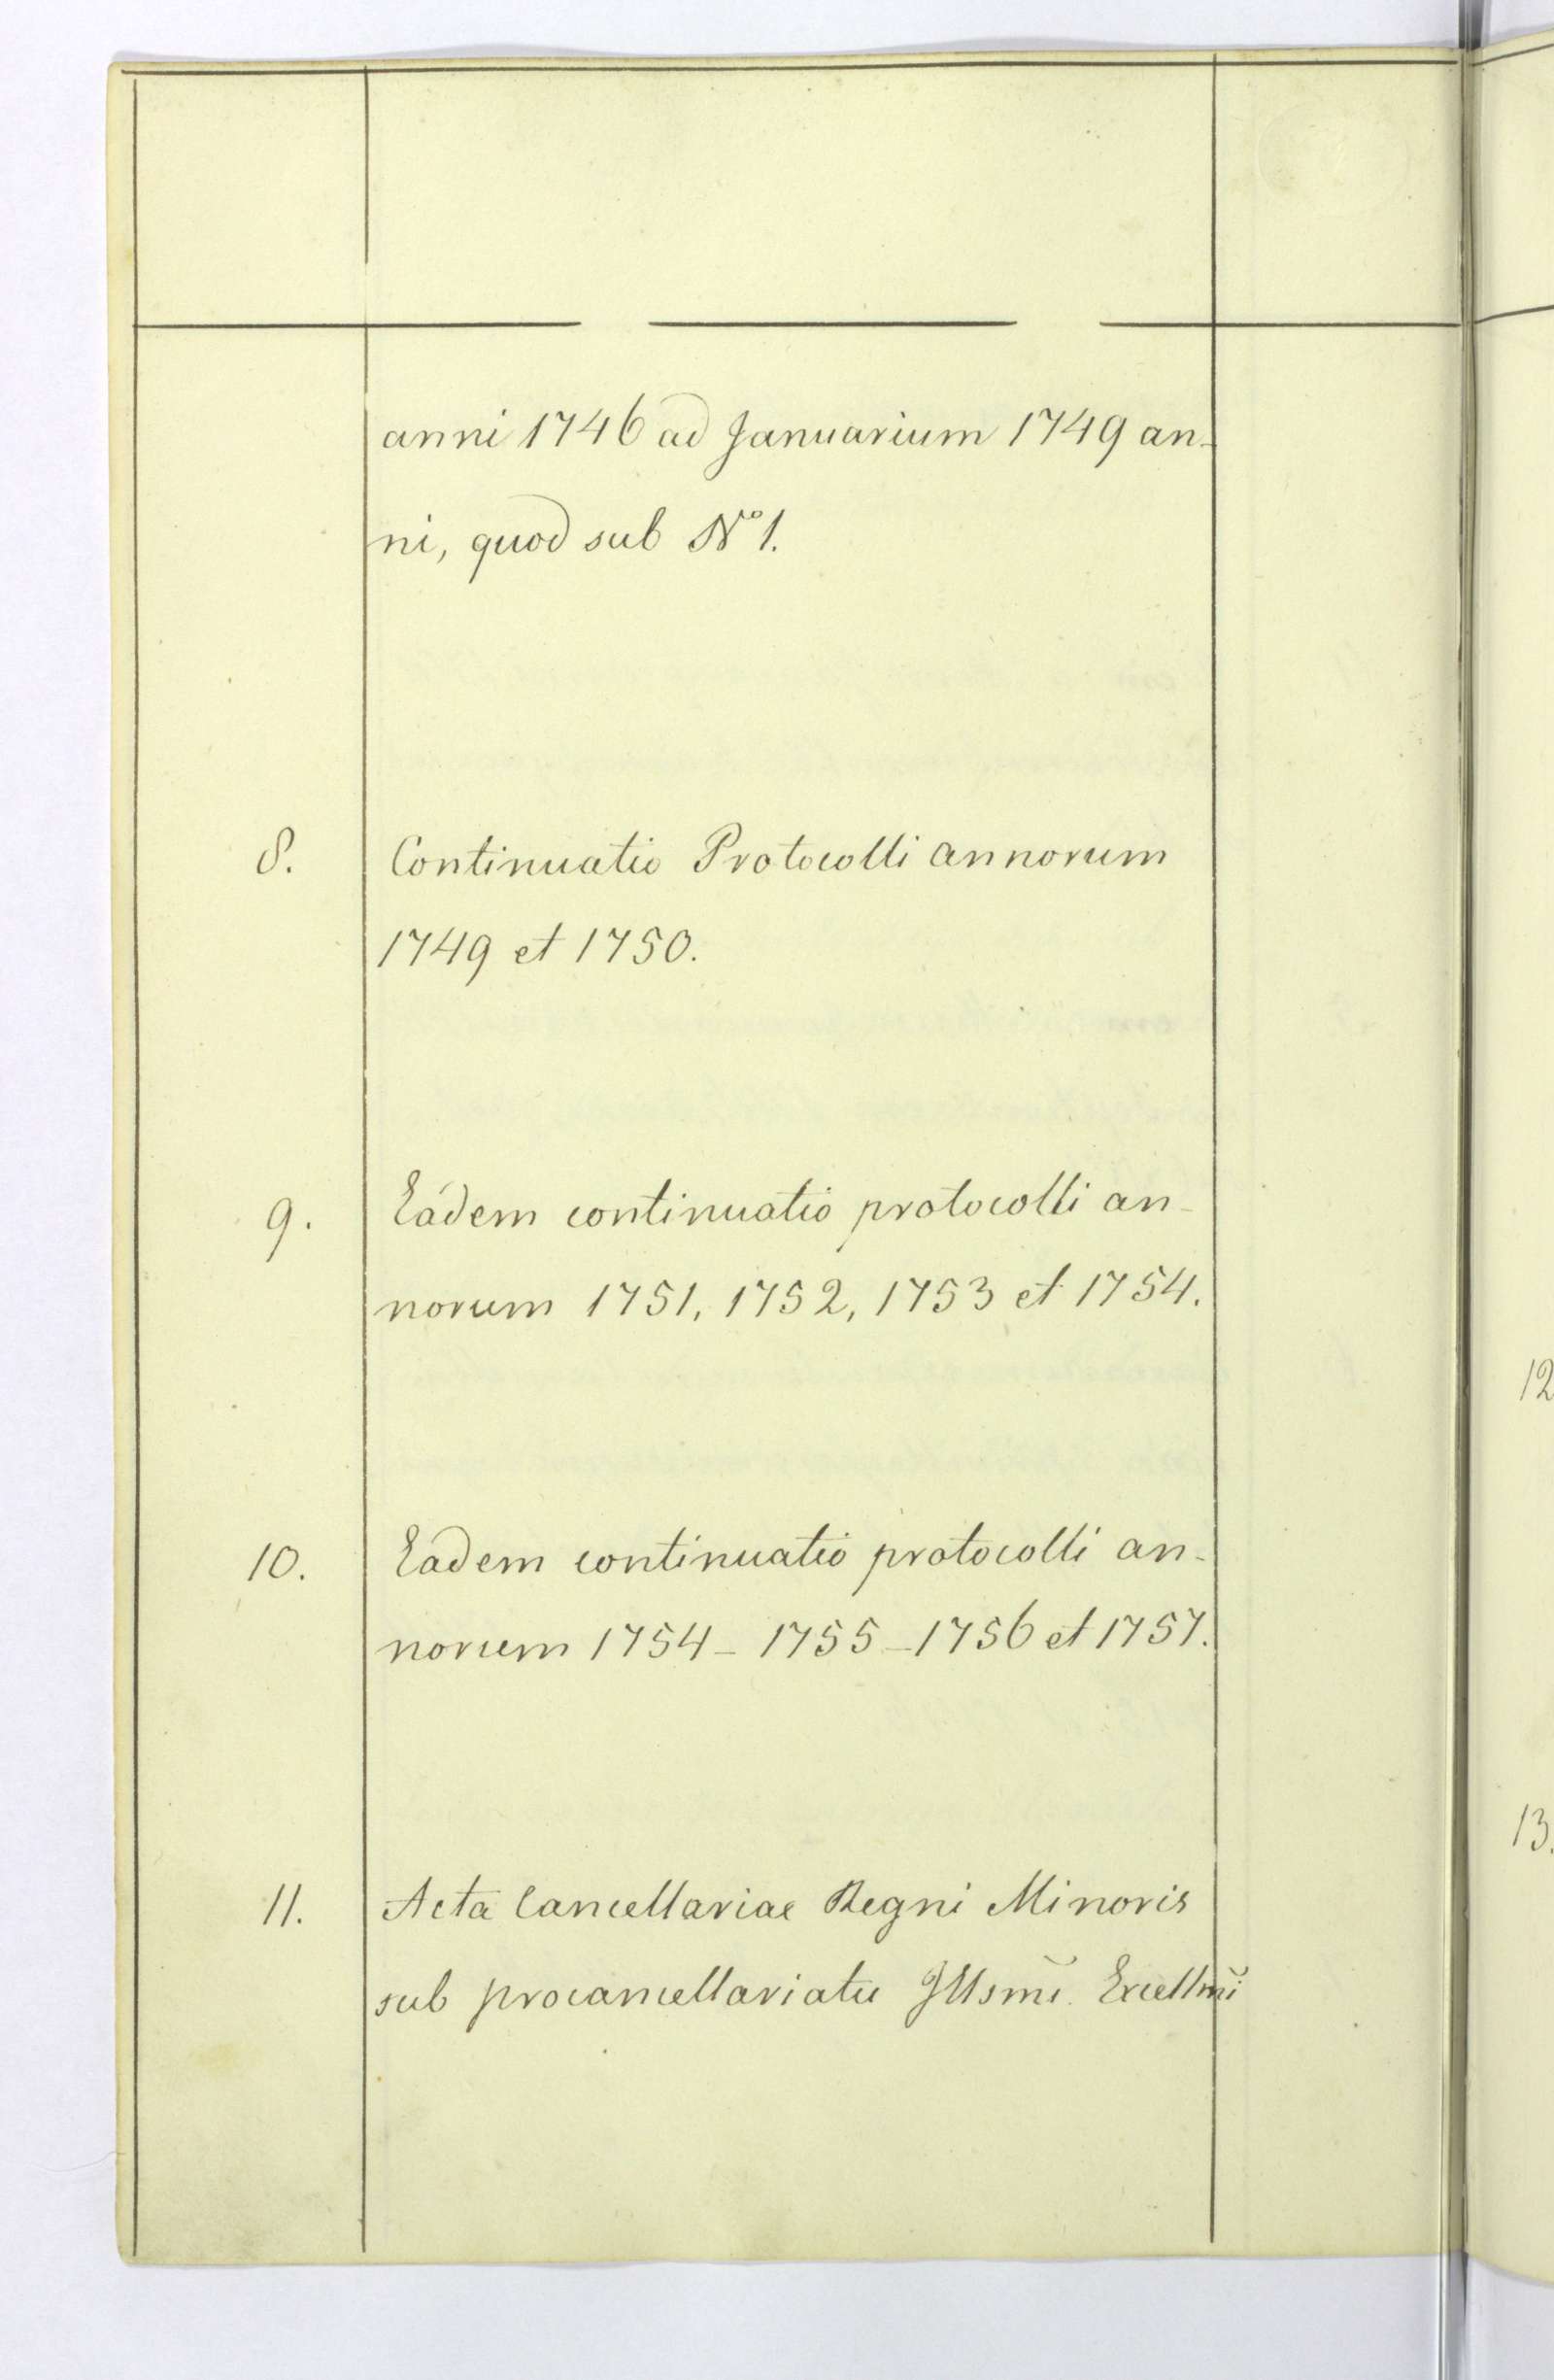 anni 1746 ad Januarium 1749 an-
ni, quod sub Nº 1.
8. Continuatio Protocolli annorum
1749 et 1750.
9. Eádem continuatio protocolli an-
norum 1751, 1752, 1753 et 1754.
10. Eadem continuatio protocolli an-
norum 1754 - 1755 - 1756 et 1757.
11. Acta Cancellariae Regni Minoris
sub procancellariatu Jllsmi. Excellmi
12
13.